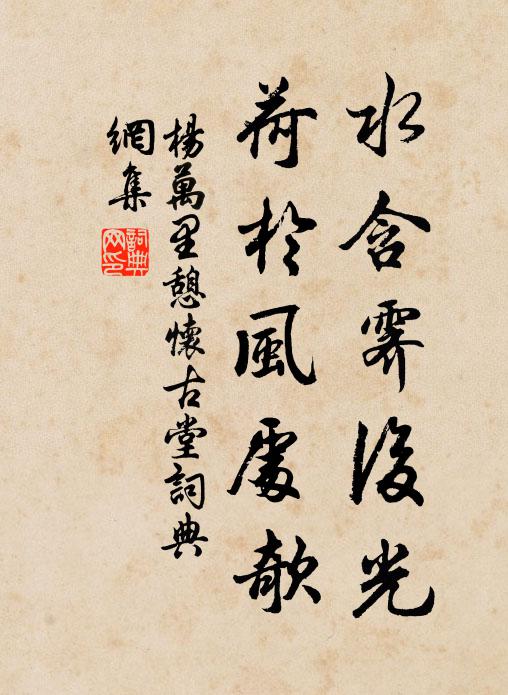 水含霽後光
荷於風處欹
楊萬里憩懷古堂詞典
網集
詞典
网印